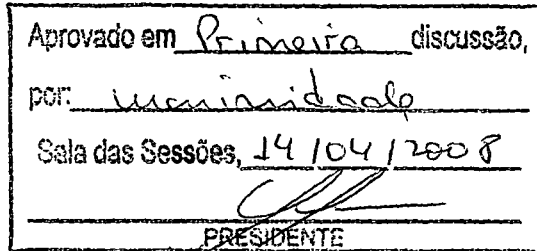 Aprovado em Primeira discussão,
por: unanimidade
Sala das Sessões, 14/04/2008
PRESIDENTE